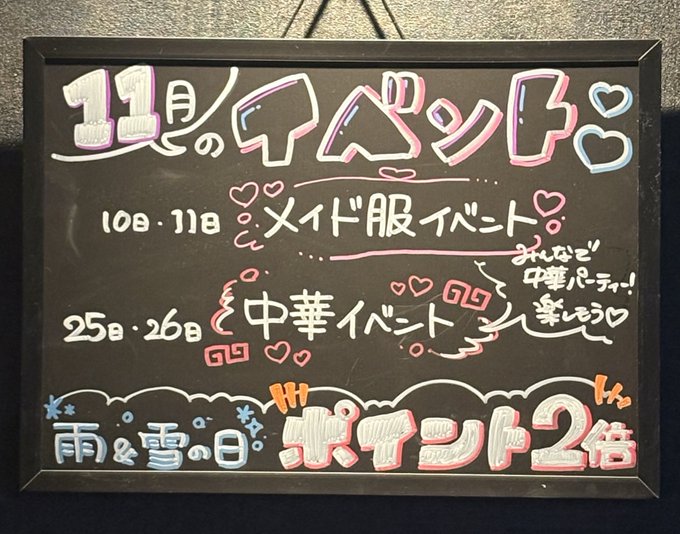 11月のイベント
10日・11日 メイド服イベント
みんなで
中華パーティー!
楽しもう♡
25日・26日 中華イベント
雨&雪の日 ポイント2倍